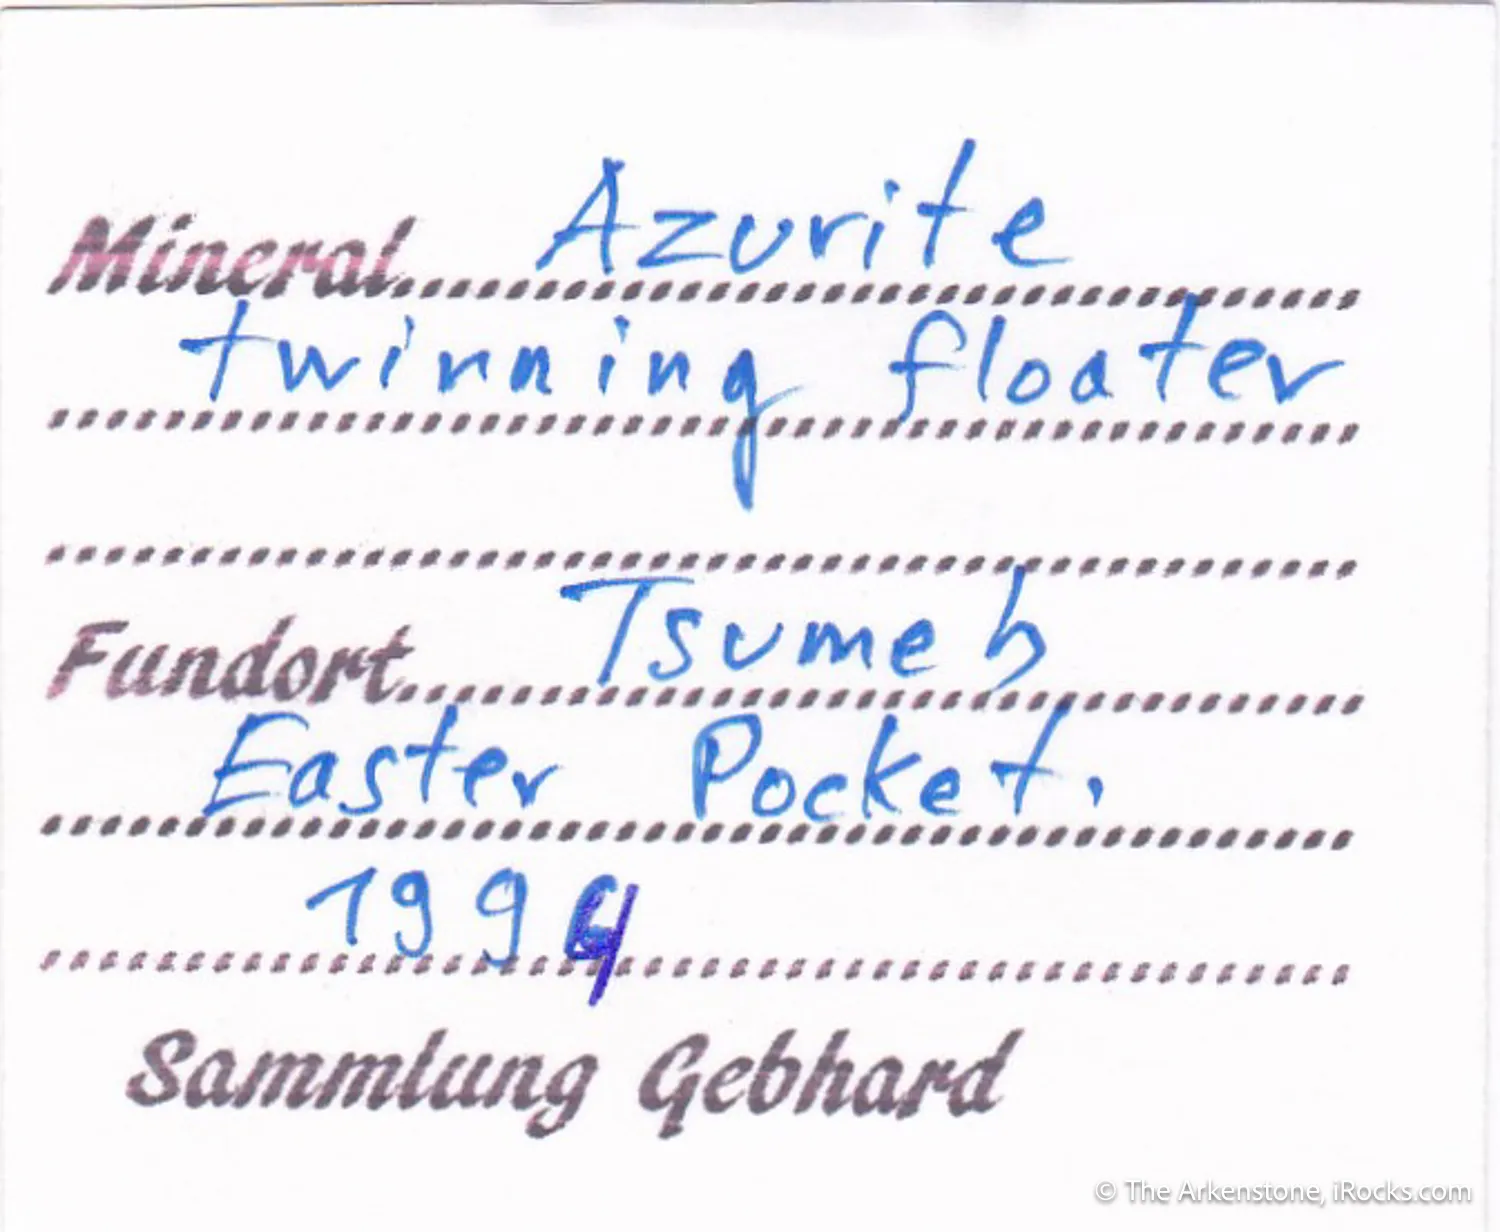 Mineral Azurite
twinning floater
Fundort Tsumeb
Easter Pocket.
1994
Sammlung Gebhard
© The Arkenstone, iRocks.com